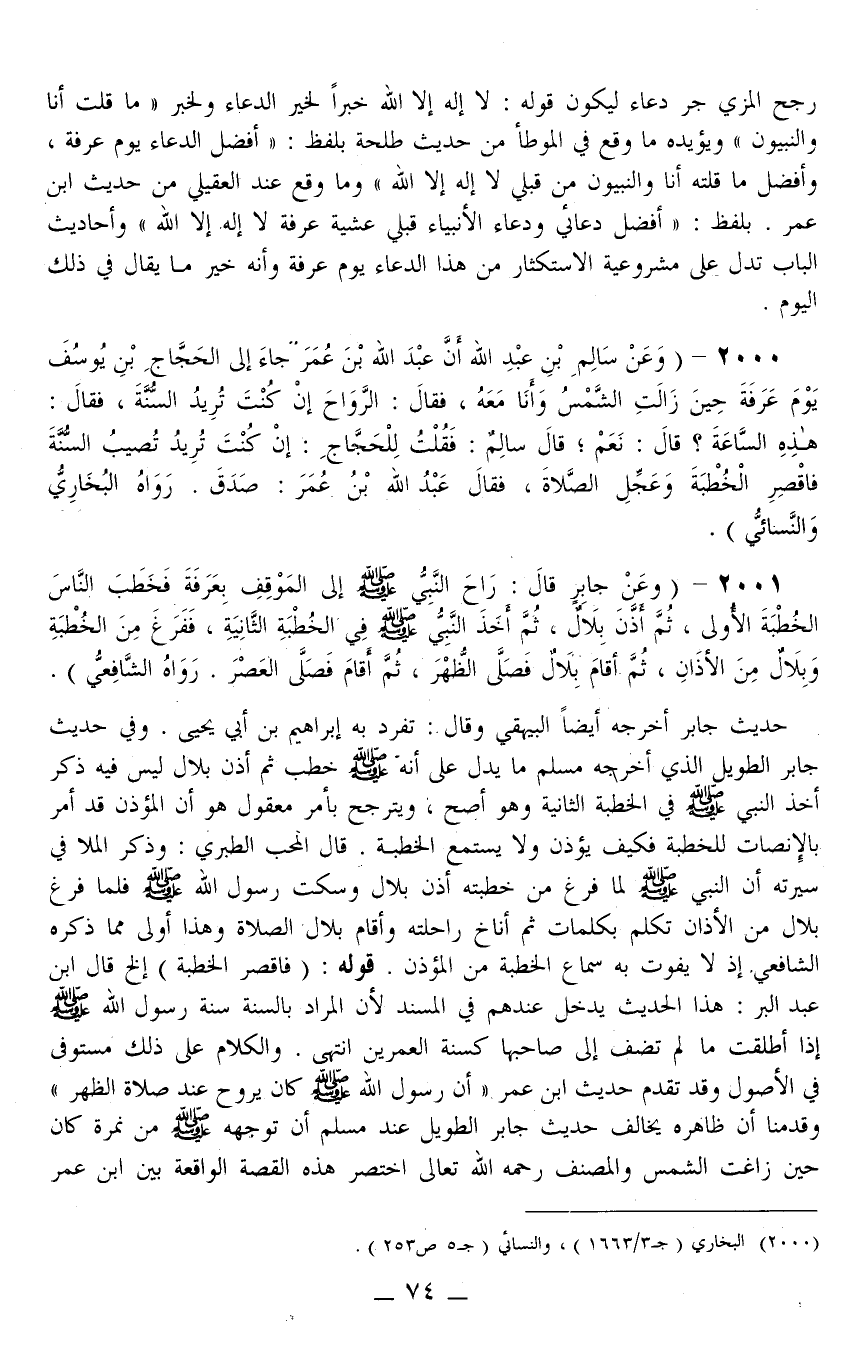 رجح المزي جر دعاء ليكون قوله : لا إله إلا الله خبراً لخير الدعاء ولخبر « ما قلت أنا
والنبيون » ويؤيده ما وقع في الموطأ من حديث طلحة بلفظ : « أفضل الدعاء يوم عرفة ،
وأفضل ما قلته أنا والنبيون من قبلي لا إله إلا الله » وما وقع عند العقيلي من حديث ابن
عمر . بلفظ : « أفضل دعائي ودعاء الأنبياء قبلي عشية عرفة لا إله إلا الله » وأحاديث
الباب تدل على مشروعية الاستكثار من هذا الدعاء يوم عرفة وأنه خير مـا يقال في ذلك
اليوم .
٢٠٠٠ – ( وَعَنْ سَالِمِ بْنِ عبْدِ الله أَنَّ عبْدَ الله بْنَ عُمَرَ جاءَ إلى الحَجَّاجِ بْنِ يُوسُفَ
يَوْمَ عَرَفَةَ حِينَ زَالَتِ الشَّمْسُ وَأَنَا مَعَهُ ، فقالَ : الرَّوَاحَ إنْ كُنْتَ تُرِيدُ السُّنَّةَ ، فقالَ :
هـٰذِهِ السَّاعَةَ ؟ قالَ : نَعَمْ ؛ قالَ سالِمٌ : فَقُلْتُ لِلْحَجَّاجِ : إنْ كُنْتَ تُرِيدُ تُصيبُ السُّنَّةَ
فاقْصِرِ الْخُطْبَةَ وَعَجِّلِ الصَّلاةَ ، فقالَ عَبْدُ الله بْنُ عُمَرَ : صَدَقَ . رَوَاهُ البُخَارِيُّ
وَالنَّسائيُّ ) .
٢٠٠١ – ( وعَنْ جابِرٍ قالَ : رَاحَ النَّبِيُّ ﷺ إلى المَوْقِفِ بِعَرَفَةَ فَخَطَبَ النَّاسَ
الخُطْبَةَ الأُولى ، ثُمَّ أَذَّنَ بِلَالٌ ، ثُمَّ أَخَذَ النَّبِيُّ ﷺ فِي الخُطْبَةِ الثَّانِيَةِ ، فَفَرَغَ مِنَ الخُطْبَةِ
وَبِلَالٌ مِنَ الأَذَانِ ، ثُمَّ أقامَ بِلَالٌ فَصَلَّى الظُّهْرَ ، ثُمَّ أَقامَ فَصَلَّى العَصْرَ . رَوَاهُ الشَّافعِيُّ ) .
حديث جابر أخرجه أيضاً البيهقي وقال : تفرد به إبراهيم بن أبي يحيى . وفي حديث
جابر الطويل الذي أخرجه مسلم ما يدل على أنه ﷺ خطب ثم أذن بلال ليس فيه ذكر
أخذ النبي ﷺ في الخطبة الثانية وهو أصح ، ويترجح بأمر معقول هو أن المؤذن قد أمر
بالإنصات للخطبة فكيف يؤذن ولا يستمع الخطبـة . قال المحب الطبري : وذكر الملا في
سيرته أن النبي ﷺ لما فرغ من خطبته أذن بلال وسكت رسول الله ﷺ فلما فرغ
بلال من الأذان تكلم بكلمات ثم أناخ راحلته وأقام بلال الصلاة وهذا أولى مما ذكره
الشافعي إذ لا يفوت به سماع الخطبة من المؤذن . قوله : ( فاقصر الخطبة ) إلخ قال ابن
عبد البر : هذا الحديث يدخل عندهم في المسند لأن المراد بالسنة سنة رسول الله ﷺ
إذا أطلقت ما لم تضف إلى صاحبها كسنة العمرين انتهى . والكلام على ذلك مستوفى
في الأصول وقد تقدم حديث ابن عمر « أن رسول الله ﷺ كان يروح عند صلاة الظهر »
وقدمنا أن ظاهره يخالف حديث جابر الطويل عند مسلم أن توجهه ﷺ من نمرة كان
حين زاغت الشمس والمصنف رحمه الله تعالى اختصر هذه القصة الواقعة بين ابن عمر
(٢٠٠٠) البخاري ( جـ٣/١٦٦٣ ) ، والنسائي ( جـ٥ ص٢٥٣ ) .
– ٧٤ –